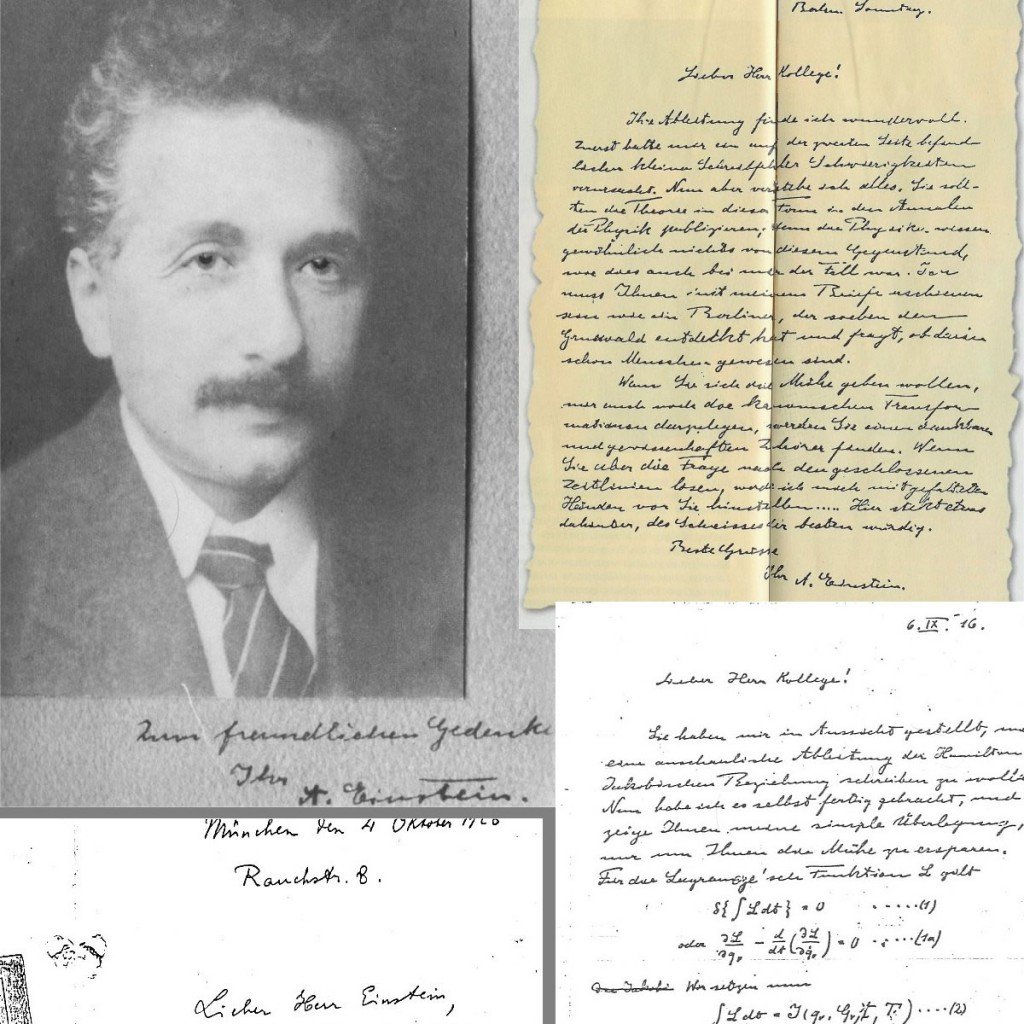 Zum freundlichen Gedenke
Ihr
A. Einstein.
Berlin Sonntag.
Lieber Herr Kollege!
Ihre Ableitung finde ich wundervoll.
Zuerst hatte mir ein auf der zweiten Seite befind-
licher kleiner Schreibfehler Schwierigkeiten
verursacht. Nun aber verstehe ich alles. Sie soll-
ten die Theorie in dieser Form in den Annalen
der Physik publizieren, denn die Physiker wissen
gewöhnlich nichts von diesem Gegenstand,
wie dies auch bei mir der Fall war. Ich
muss Ihnen mit meinem Briefe erschienen
sein wie ein Berliner, der soeben den
Grunewald entdeckt hat und fragt, ob darin
schon Menschen gewesen sind.
Wenn Sie sich die Mühe geben wollen,
mir auch noch die kanonischen Transfor-
mationen darzulegen, werden Sie einen dankbaren
und gewissenhaften Zuhörer finden. Wenn
Sie aber die Frage nach den geschlossenen
Zeitlinien lösen, werde ich mich mit gefalteten
Händen vor Sie hinstellen..... Hier steckt etwas
dahinter, des Schweisses der besten würdig.
Beste Grüsse
Ihr A. Einstein.
6. IX. 16.
Lieber Herr Kollege!
Sie haben mir in Aussicht gestellt, mi
eine anschauliche Ableitung der Hamilton
Jakobischen Beziehung schreiben zu wolle
Nun habe ich es selbst fertig gebracht, und
zeige Ihnen meine simple Überlegung,
nur um Ihnen die Mühe zu ersparen.
Für die Lagrange'sche Funktion L gilt
δ{∫ L dt} = 0 .....(1)
oder ∂L/∂qᵥ - d/dt(∂L/∂q̇ᵥ) = 0 .....(1a)
Wir setzen nun
∫ L dt = J .....(2)
München den 4 Oktober 1926
Rauchstr. 8.
Lieber Herr Einstein,